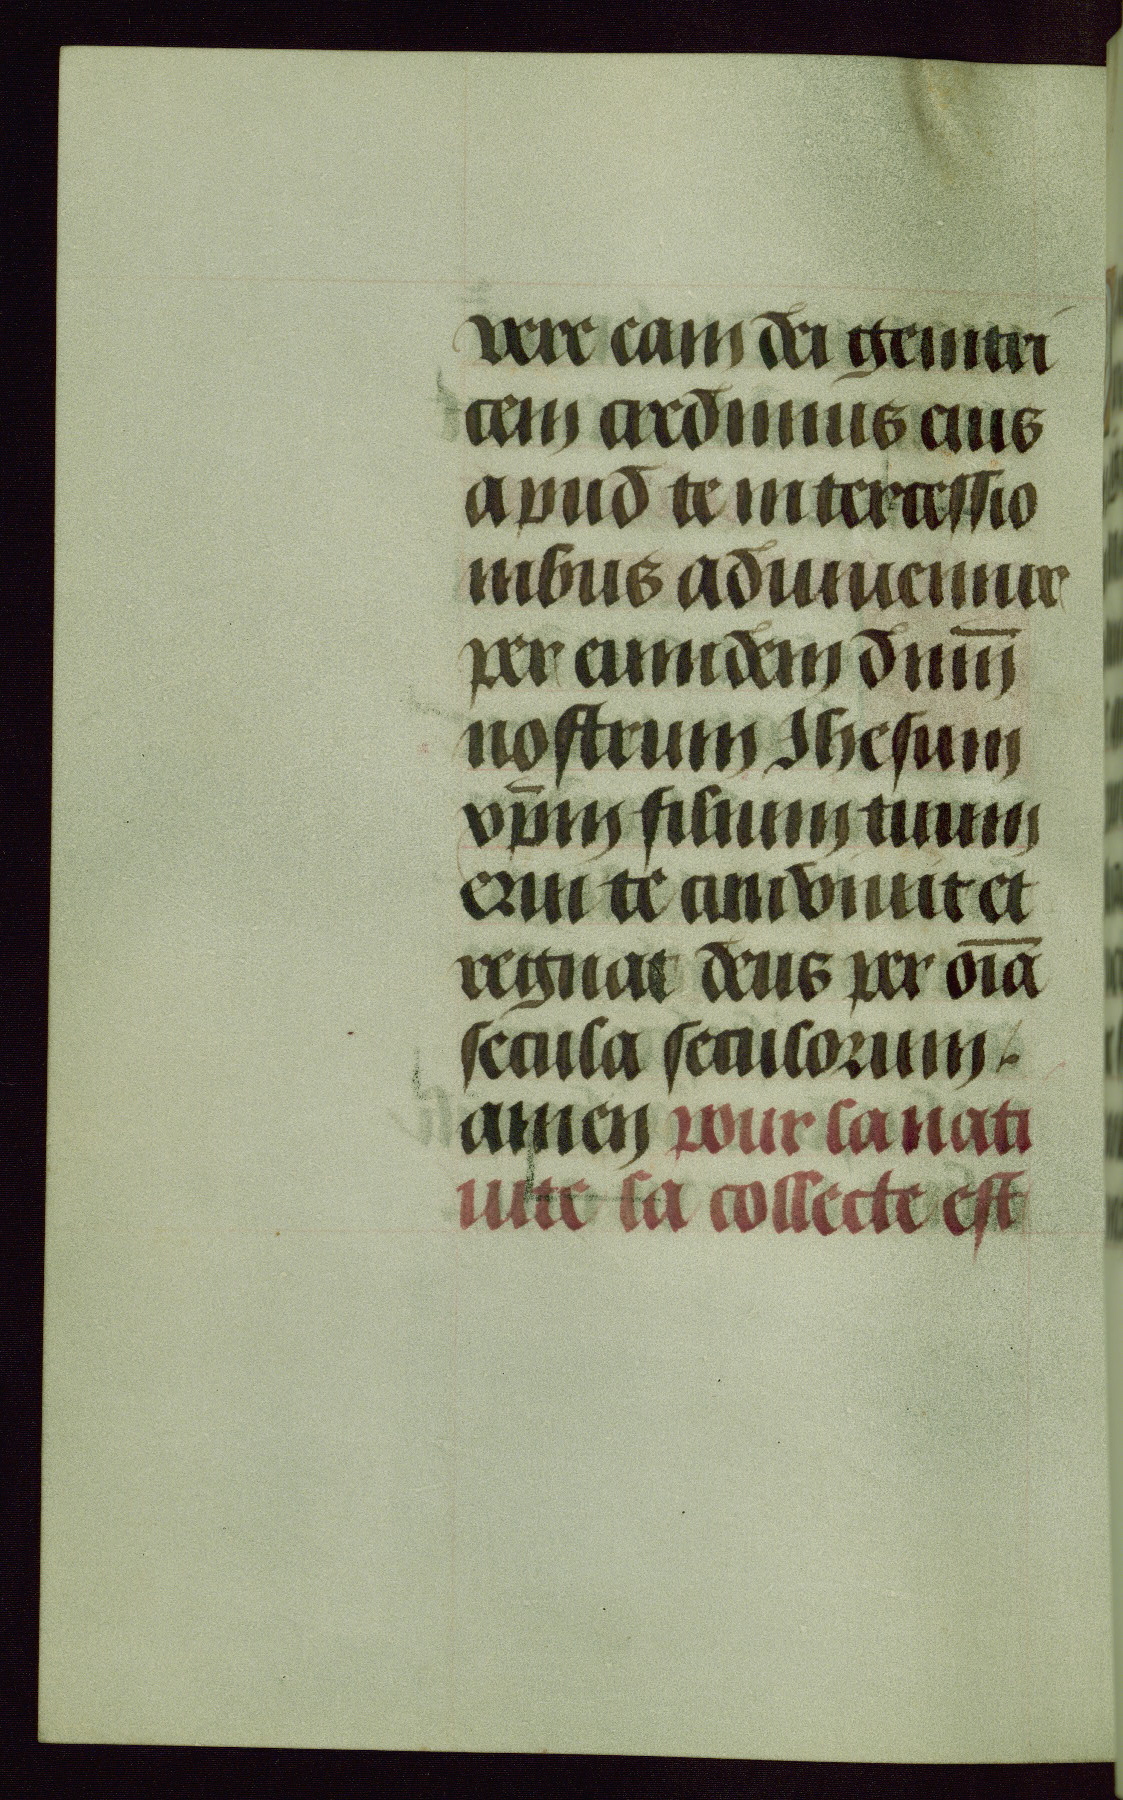 vere eam dei genitri
cem credimus eius
apud te intercessio
nibus adiuuemur
per eumdem dnm̄
nostrum Ihesum
xp̄m filium tuum
qui te cum viuit et
regnat deus per oīa
secula seculorum .
amen pour la nati
uite la collecte est